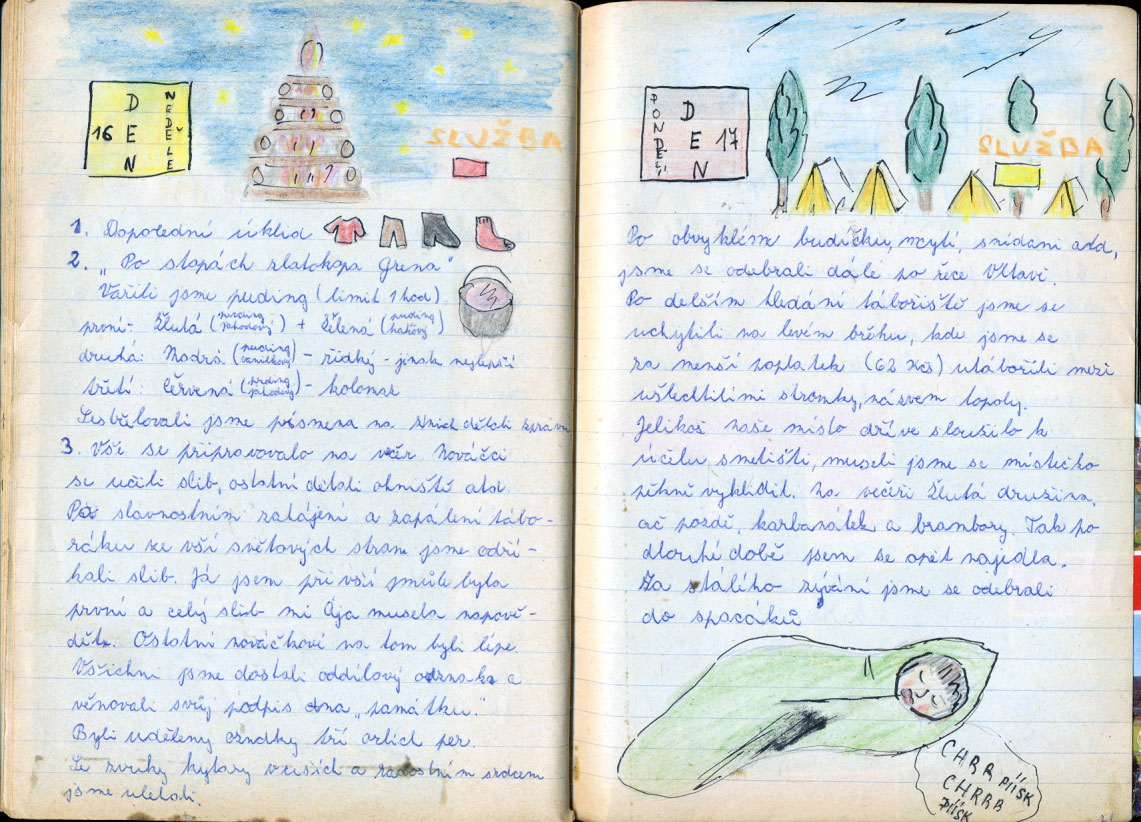 16
DEN
NEDĚLE
SLUŽBA
1. Dopolední úklid
2. „Po stopách zlatokopa Grena“
Vařili jsme puding (limit 1 hod).
první: Žlutá (puding jahodový) + Zelená (puding kakový)
druhá: Modrá (puding vanilkový) - řídký - jinak nejlepší
třetí: Červená (puding jahodový) - kolomaz
Sesbírali jsme písmena na nich děleli zprávu
3. Vše se připravovalo na večer. Nováčci
se učili slib, ostatní dělali ohniště atd.
Po slavnostním zahájení a zapálení tábo-
ráku ze vší světových stran jsme odří-
kali slib. Já jsem při vší smůle byla
první a celý slib mi Ája musela napově-
dět. Ostatní nováčkové na tom byli lépe.
Všichni jsme dostali oddílový odznak a
věnovali svůj podpis na „památku.“
Byli uděleny oznaky tří orlích per.
Se zvuky kytary v uších a radostným srdcem
jsme ulehli.
PONDĚLÍ
DEN
17
SLUŽBA
Po obvyklém budíčku, mytí, snídani atd,
jsme se odebrali dále po řece Vltavě.
Po delším hledání tábořiště jsme se
uchytili na levém břehu, kde jsme se
za menší poplatek (62 Kčs) utábořili mezi
ušlechtilími stromky, názvem topoly.
Jelikož naše místo dříve sloužilo k
účelu smetišti, museli jsme se místečko
pěkně vyklidit. Na večeři Žlutá družina,
ač pozdě, karbanátek a brambory. Tak po
dlouhé době jsem se opět najedla.
Za stálého zývání jsme se odebrali
do spacáků
CHRR PIÍSK
CHRRR
PIÍSK